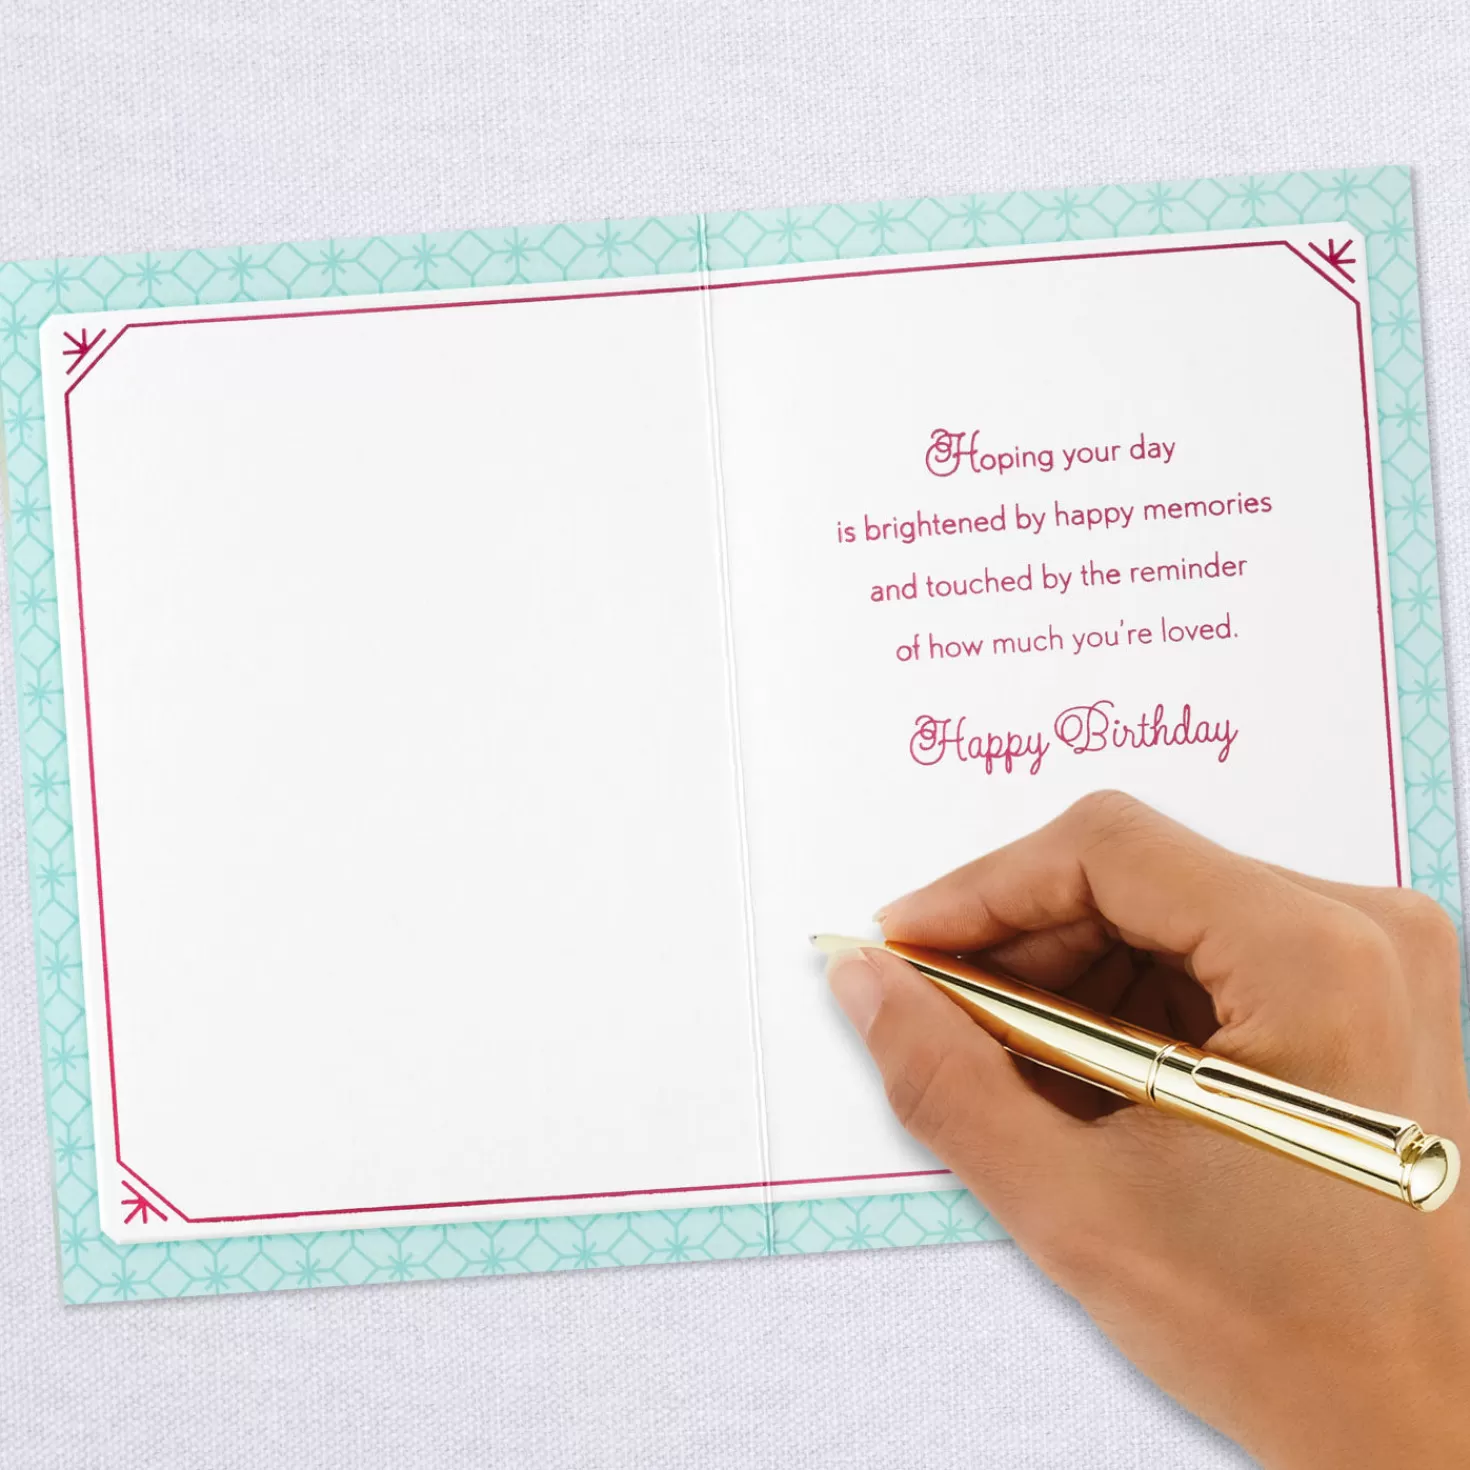 Hoping your day
is brightened by happy memories
and touched by the reminder
of how much you're loved.
Happy Birthday